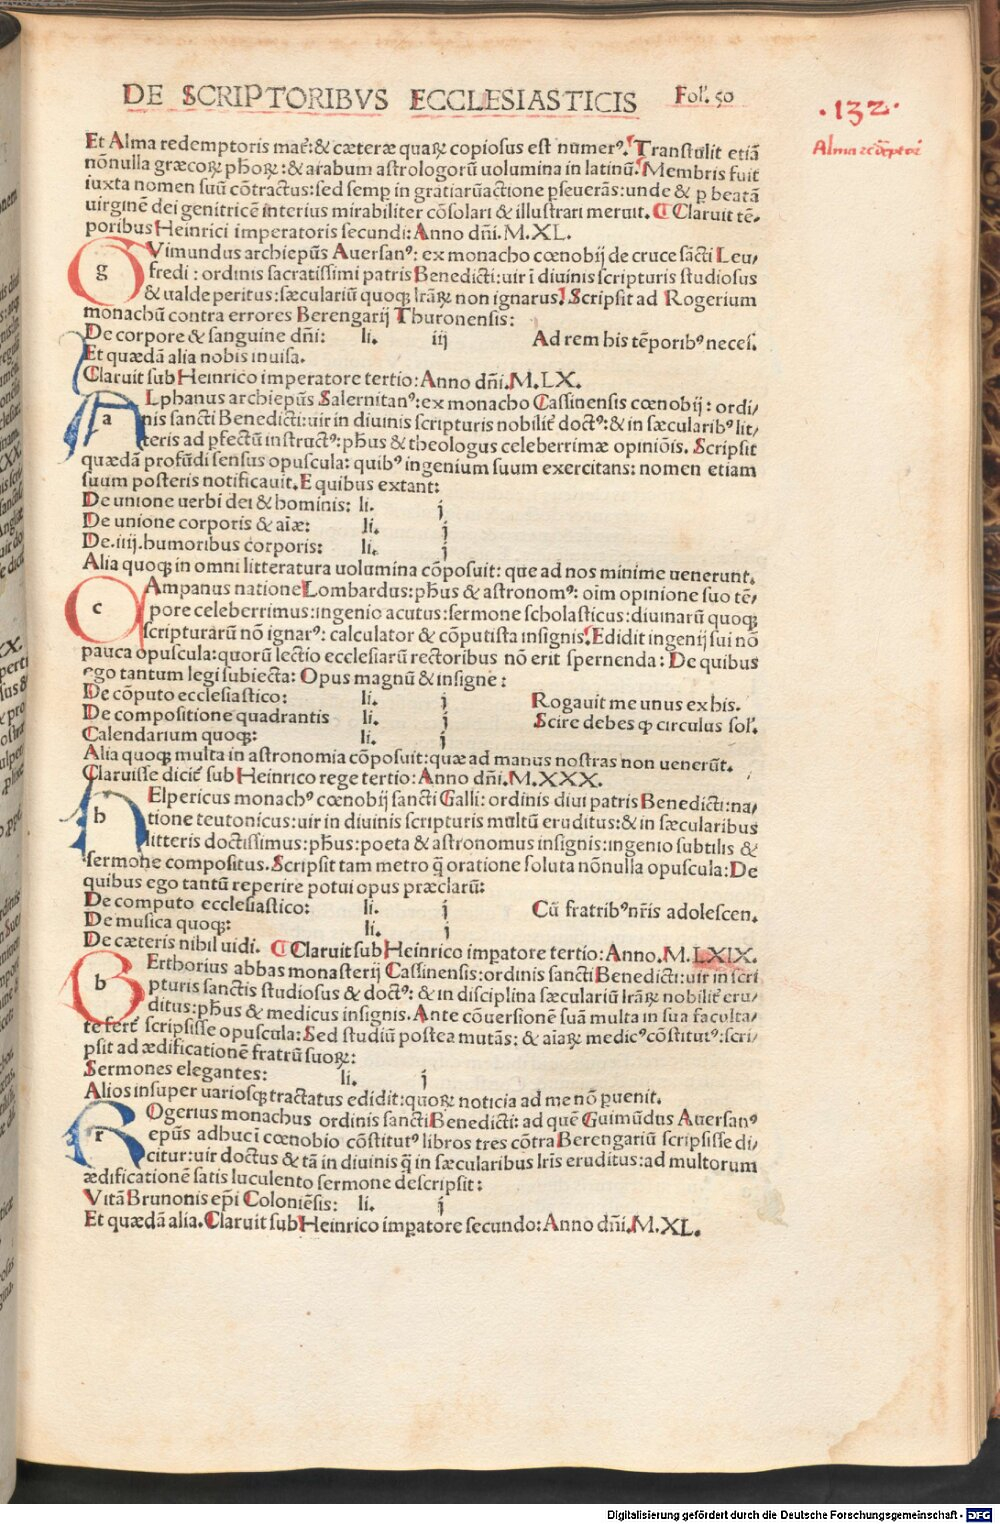 DE SCRIPTORIBVS ECCLESIASTICIS Fol'. 50
.132.
Alma redēptoris
Et Alma redemptoris mat̄: & cæteræ quaꝝ copiosus est numerꝰ. Transtulit etiā
nōnulla græcoꝝ phōꝝ: & arabum astrologorū uolumina in latinū. Membris fuit
iuxta nomen suū cōtractus: sed semꝑ in gratiarūactione ꝑseuerās: unde & ꝑ beatā
uirginē dei genitricē interius mirabiliter cōsolari & illustrari meruit. ¶ Claruit tē-
poribus Heinrici imperatoris secundi: Anno dn̄i. M.XL.
g Vimundus archiepūs Auersanꝰ: ex monacho cœnobij de cruce sācti Leu/
fredi: ordinis sacratissimi patris Benedicti: uir ī diuinis scripturis studiosus
& ualde peritus: sæculariū quoqꝫ lr̄aꝝ non ignarus. Scripsit ad Rogerium
monachū contra errores Berengarij Thuronensis:
De corpore & sanguine dn̄i: li. iij Ad rem bis tēporibꝰ neces.
Et quædā alia nobis inuisa.
Claruit sub Heinrico imperatore tertio: Anno dn̄i. M.LX.
a Lphanus archiepūs Salernitanꝰ: ex monacho Cassinensis cœnobij: ordi/
nis sancti Benedicti: uir in diuinis scripturis nobilit̄ doctꝰ: & in sæcularibꝰ lit/
teris ad ꝑfectū instructꝰ: phūs & theologus celeberrimæ opiniōis. Scripsit
quædā profūdi sensus opuscula: quibꝰ ingenium suum exercitans: nomen etiam
suum posteris notificauit. E quibus extant:
De unione uerbi dei & hominis: li. j
De unione corporis & aīæ: li. j
De .iiij. humoribus corporis: li. j
Alia quoqꝫ in omni litteratura uolumina cōposuit: que ad nos minime uenerunt.
c Ampanus natione Lombardus: phūs & astronomꝰ: oim opinione suo tē/
pore celeberrimus: ingenio acutus: sermone scholasticus: diuinarū quoqꝫ
scripturarū nō ignarꝰ: calculator & cōputista insignis. Edidit ingenij sui nō
pauca opuscula: quorū lectio ecclesiarū rectoribus nō erit spernenda: De quibus
ego tantum legi subiecta: Opus magnū & insigne:
De cōputo ecclesiastico: li. j Rogauit me unus ex his.
De compositione quadrantis li. j Scire debes ꝙ circulus sol'.
Calendarium quoqꝫ: li. j
Alia quoqꝫ multa in astronomia cōposuit: quæ ad manus nostras non uenerūt.
Claruisse dicit̄ sub Heinrico rege tertio: Anno dn̄i. M.XXX.
h Elpericus monachꝰ cœnobij sancti Galli: ordinis diui patris Benedicti: na/
tione teutonicus: uir in diuinis scripturis multū eruditus: & in sæcularibus
litteris doctissimus: phūs: poeta & astronomus insignis: ingenio subtilis &
sermone compositus. Scripsit tam metro q̄ oratione soluta nōnulla opuscula: De
quibus ego tantū reperire potui opus præclarū:
De computo ecclesiastico: li. j Cū fratribꝰ nr̄is adolescen.
De musica quoqꝫ: li. j
De cæteris nihil uidi. ¶ Claruit sub Heinrico impatore tertio: Anno. M.LXIX.
b Erthorius abbas monasterij Cassinensis: ordinis sancti Benedicti: uir in scri
pturis sanctis studiosus & doctꝰ: & in disciplina sæculariū lr̄aꝝ nobilit̄ eru/
ditus: phūs & medicus insignis. Ante cōuersionē suā multa in sua faculta/
te fert̄ scripsisse opuscula: Sed studiū postea mutās: & aīaꝝ medicꝰ cōstitutꝰ: scri/
psit ad ædificationē fratrū suoꝝ:
Sermones elegantes: li. j
Alios insuper uariosqꝫ tractatus edidit: quoꝝ noticia ad me nō ꝑuenit.
r Ogerius monachus ordinis sancti Benedicti: ad quē Guimūdus Auersanꝰ
epūs adhuc ī cœnobio cōstitutꝰ libros tres cōtra Berengariū scripsisse di/
citur: uir doctus & tā in diuinis q̄ in sæcularibus lr̄is eruditus: ad multorum
ædificationē satis luculento sermone descripsit:
Vitā Brunonis ep̄i Coloniēsis: li. j
Et quædā alia. Claruit sub Heinrico impatore secundo: Anno dn̄i. M.XL.
Digitalisierung gefördert durch die Deutsche Forschungsgemeinschaft - DFG